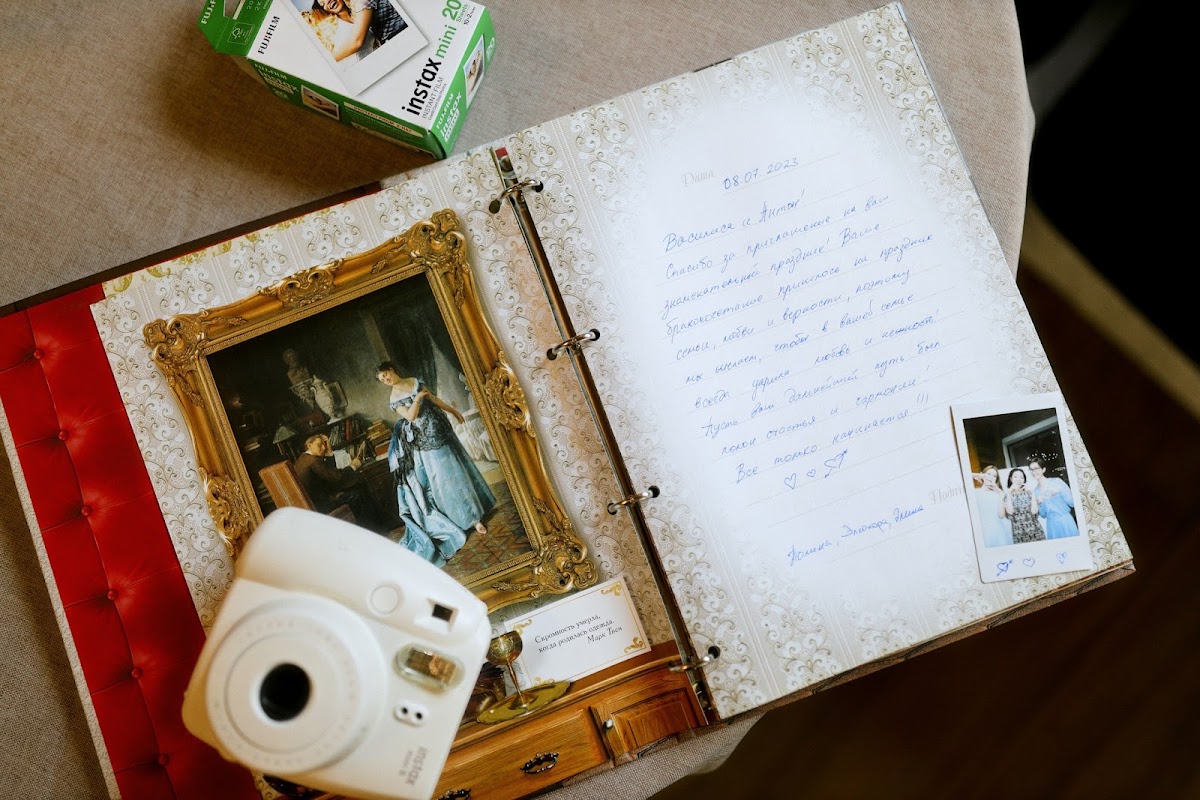 FUJIFILM
instax mini 20
INSTANT FILM
FUJIFILM
instax
Дата 08.07.2023
Василиса и Антон!
Спасибо за приглашение на ваш
знаменательный праздник! Ваше
бракосочетание пришлось на праздник
семьи, любви и верности, поэтому
мы желаем, чтобы в вашей семье
всегда царила любовь и нежность!
Пусть ваш дальнейший путь был
полон счастья и гармонии!
Все только начинается!!!
Подпи
Полина, Элина
Скромность умерла,
когда родилась одежда.
Марк Твен
instax
mini 8